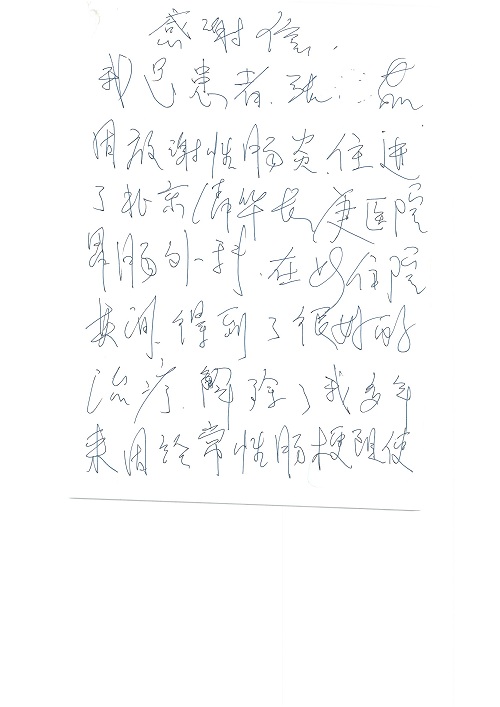 感谢信.
我是患者.张
因放谢性肠炎.住进
了北京清华长庚医院
胃肠外科.在此住院
其间.得到了很好的
治疗.解除了我多年
来因经常性肠梗阻使